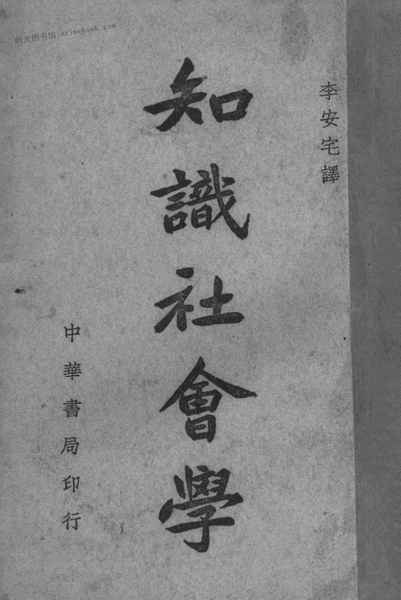 李安宅譯
知識社會學
中華書局印行